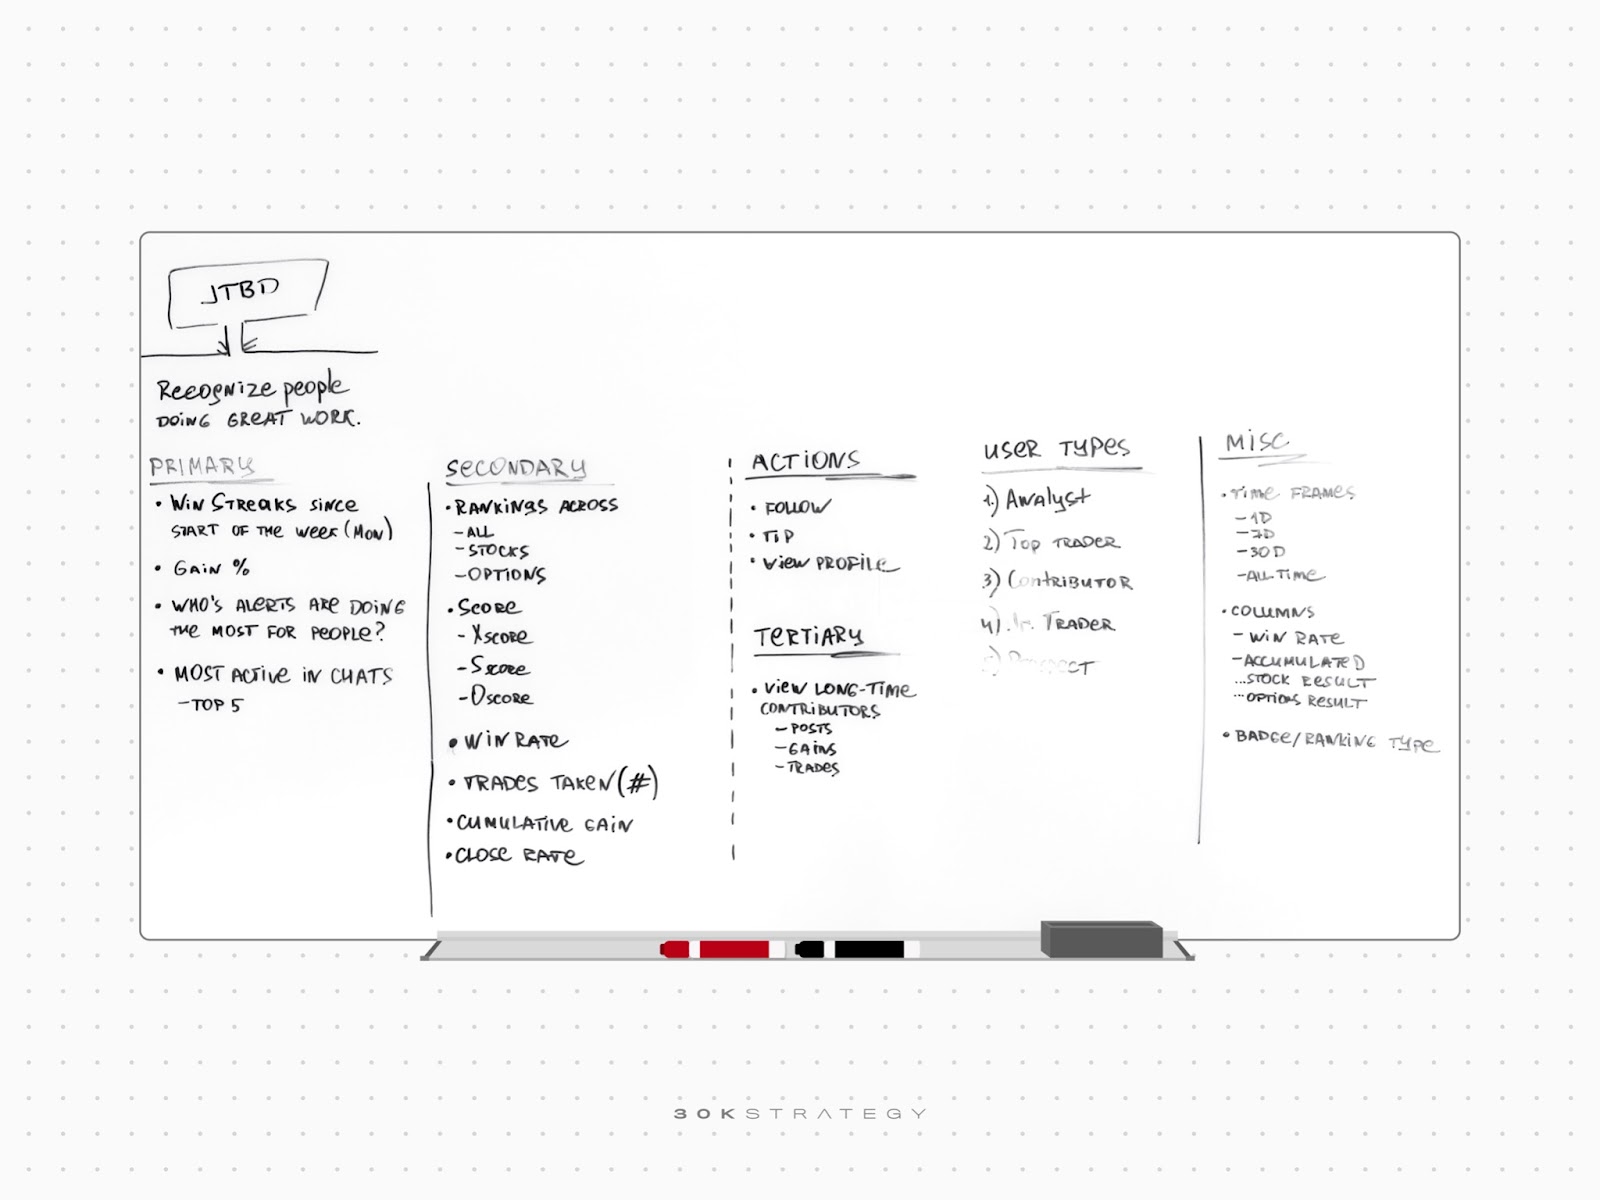 JTBD
Recognize people
DOING GREAT WORK.
PRIMARY
• WIN STREAKS SINCE
START OF THE WEEK (MON)
• GAIN %
• WHO'S ALERTS ARE DOING
THE MOST FOR PEOPLE?
• MOST ACTIVE IN CHATS
- TOP 5
SECONDARY
• RANKINGS ACROSS
- ALL
- STOCKS
- OPTIONS
• SCORE
- XSCORE
- SSCORE
- OSCORE
• WIN RATE
• TRADES TAKEN (#)
• CUMULATIVE GAIN
• CLOSE RATE
ACTIONS
• FOLLOW
• TIP
• VIEW PROFILE
TERTIARY
• VIEW LONG-TIME
CONTRIBUTORS
- POSTS
- GAINS
- TRADES
USER TYPES
1.) Analyst
2) TOP TRADER
3) CONTRIBUTOR
4) TRADER
MISC
• TIME FRAMES
- 1D
- 7D
- 30D
- ALL TIME
• COLUMNS
- WIN RATE
- ACCUMULATED
... STOCK RESULT
... OPTIONS RESULT
• BADGE/RANKING TYPE
30KSTRATEGY